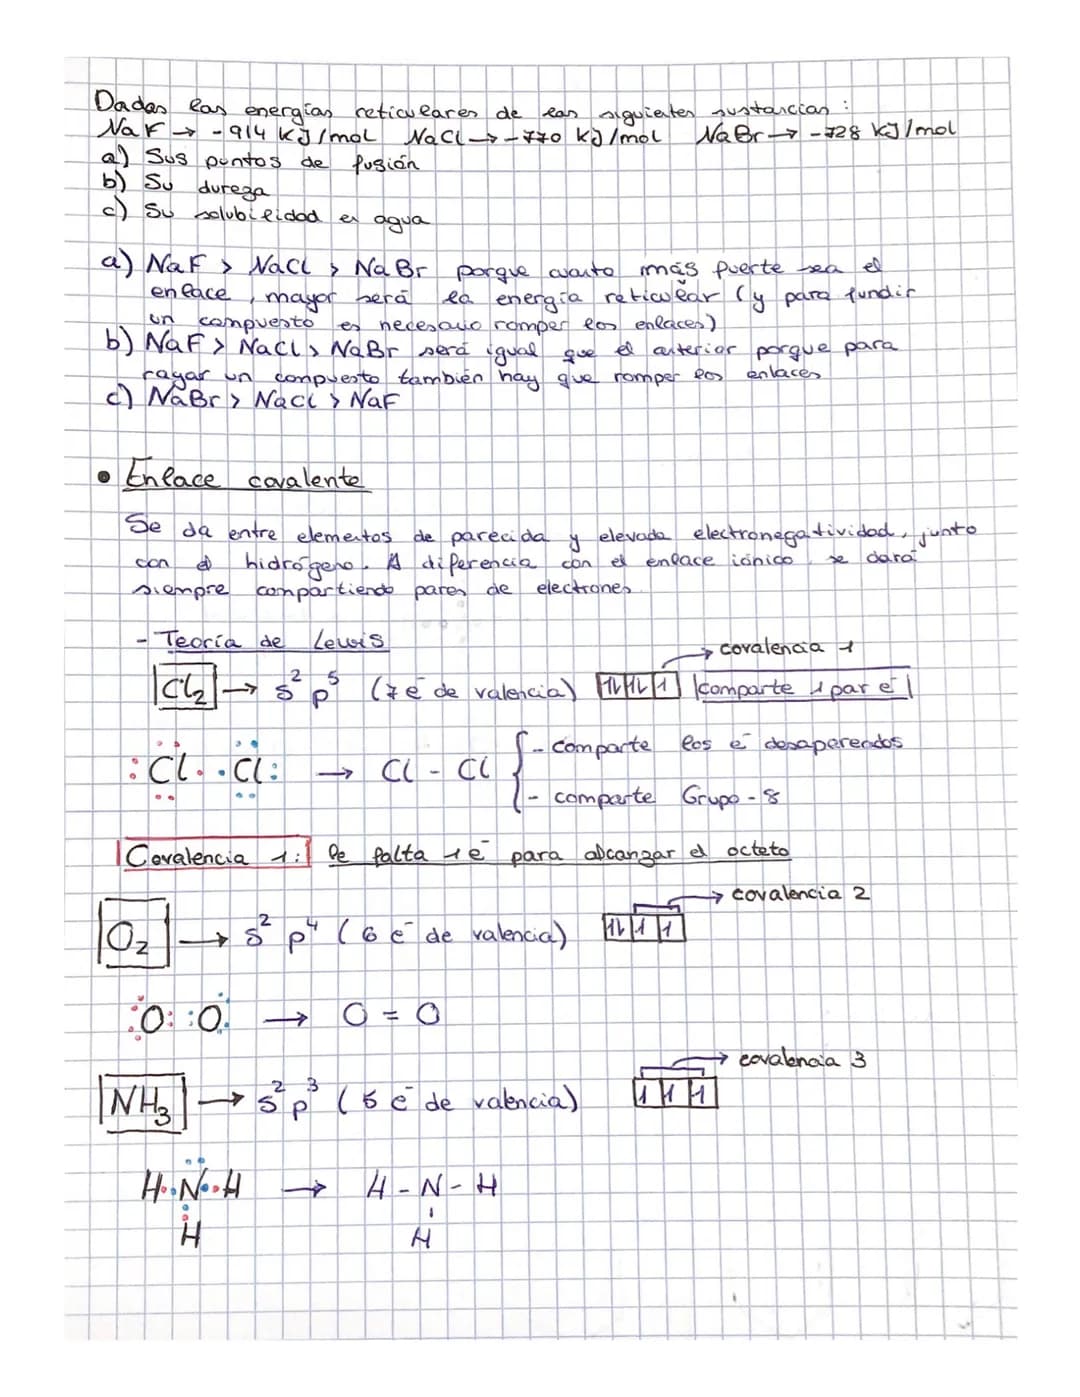 Dadas las energías reticulares de las siguientes sustancias:
NaF → -914 KJ/mol NaCl → -770 KJ/mol NaBr → -728 KJ/mol
a) Sus puntos de fusión
b) Su dureza
c) Su solubilidad en agua
a) NaF > NaCl > NaBr porque cuanto más fuerte sea el
enlace, mayor será la energía reticular (y para fundir
un compuesto es necesario romper los enlaces)
b) NaF > NaCl > NaBr será igual que el anterior porque para
rayar un compuesto también hay que romper los enlaces
c) NaBr > NaCl > NaF
• Enlace covalente
Se da entre elementos de parecida y elevada electronegatividad, junto
con el hidrógeno. A diferencia con el enlace iónico, se dará
siempre compartiendo pares de electrones.
- Teoría de Lewis
→ covalencia 1
Cl₂ → s² p⁵ (7 e⁻ de valencia) 1L 1L 1 comparte 1 par e⁻
:Cl· ·Cl: → Cl - Cl { - comparte los e⁻ desapareados
- comparte Grupo - 8
Covalencia 1: le falta 1 e⁻ para alcanzar el octeto
→ covalencia 2
O₂ → s² p⁴ (6 e⁻ de valencia) 1L 1 1
:O: :O: → O = O
→ covalencia 3
NH₃ → s² p³ (5 e⁻ de valencia) 1 1 1
H··N··H → H - N - H
H H